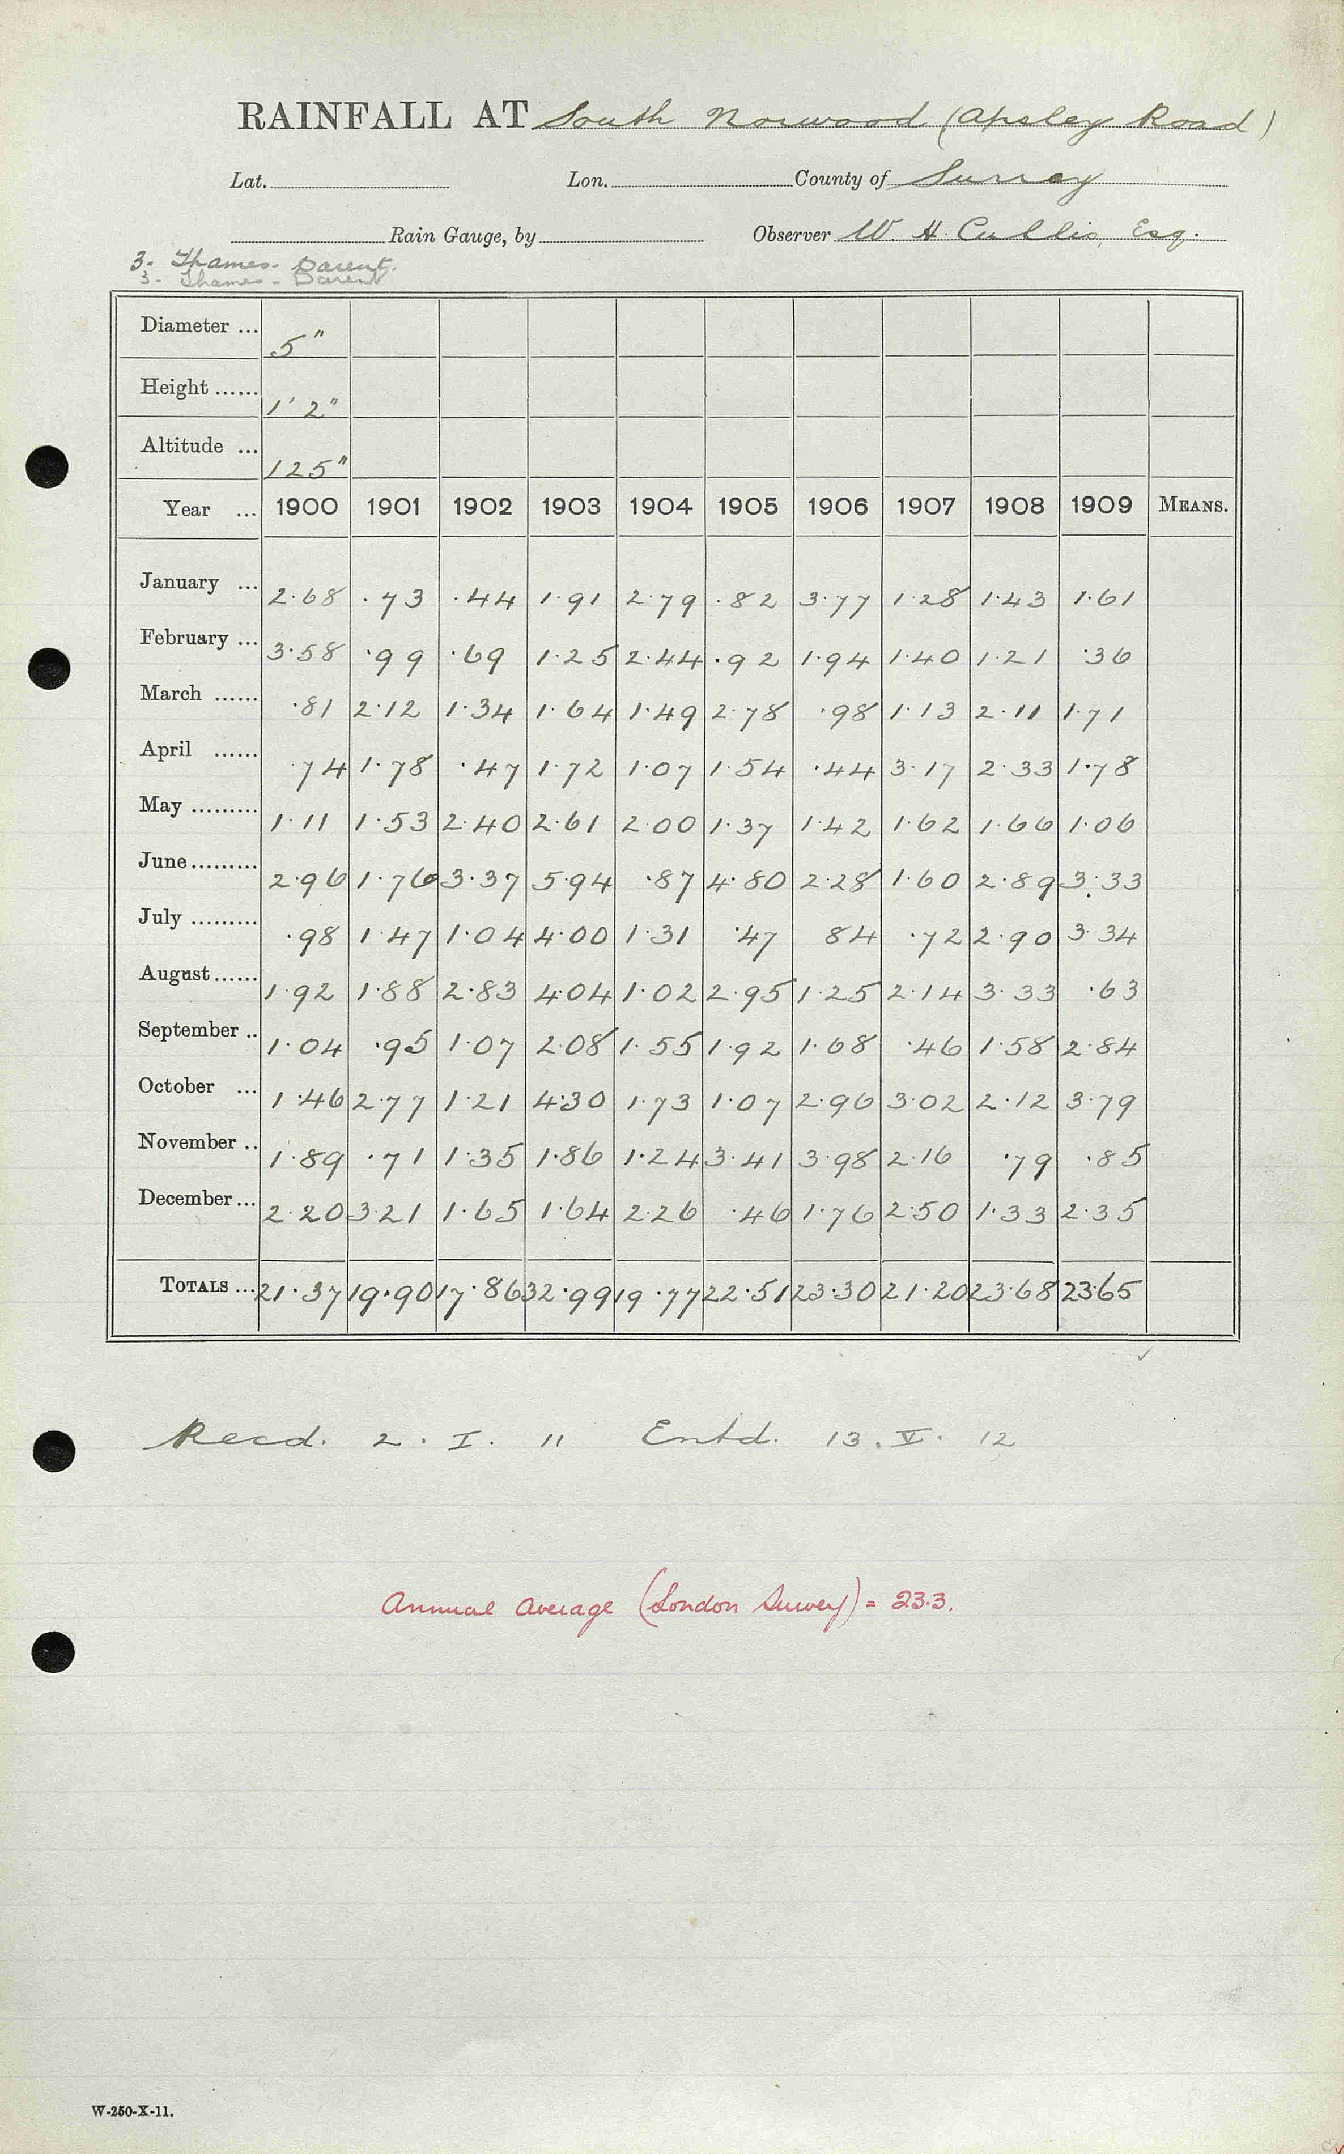 RAINFALL AT South Norwood (Apsley Road)
Lat. Lon. County of Surrey
Rain Gauge, by Observer W. H. Cullis, Esq.
3. Thames - Darent.
3. Thames - Darent
Diameter ... 5"
Height ...... 1' 2"
Altitude ... 125"
Year ... 1900 1901 1902 1903 1904 1905 1906 1907 1908 1909 MEANS.
January ... 2.68 .73 .44 1.91 2.79 .82 3.77 1.28 1.43 1.61
February ... 3.58 .99 .69 1.25 2.44 .92 1.94 1.40 1.21 .36
March ...... .81 2.12 1.34 1.64 1.49 2.78 .98 1.13 2.11 1.71
April ...... .74 1.78 .47 1.72 1.07 1.54 .44 3.17 2.33 1.78
May ......... 1.11 1.53 2.40 2.61 2.00 1.37 1.42 1.62 1.66 1.06
June ......... 2.96 1.76 3.37 5.94 .87 4.80 2.28 1.60 2.89 3.33
July ......... .98 1.47 1.04 4.00 1.31 .47 84 .72 2.90 3.34
August ...... 1.92 1.88 2.83 4.04 1.02 2.95 1.25 2.14 3.33 .63
September .. 1.04 .95 1.07 2.08 1.55 1.92 1.68 .46 1.58 2.84
October ... 1.46 2.77 1.21 4.30 1.73 1.07 2.96 3.02 2.12 3.79
November .. 1.89 .71 1.35 1.86 1.24 3.41 3.98 2.16 .79 .85
December ... 2.20 3.21 1.65 1.64 2.26 .46 1.76 2.50 1.33 2.35
TOTALS ... 21.37 19.90 17.86 32.99 19.77 22.51 23.30 21.20 23.68 23.65
Recd. 2. I. 11 Entd. 13. V. 12
Annual Average (London Survey) = 23.3.
W-250-X-11.